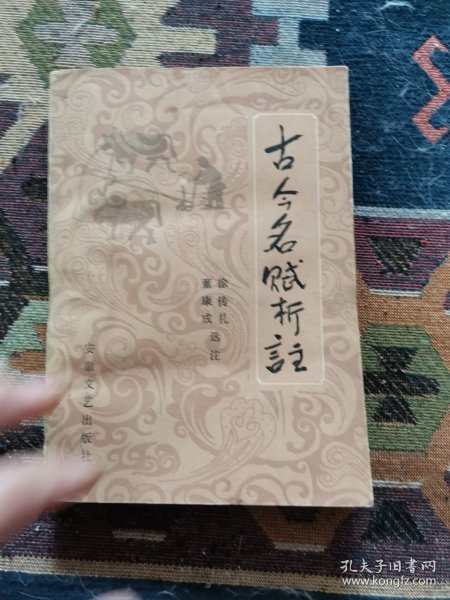 古今名赋析註
徐传礼
董康成 选注
安徽文艺出版社
孔夫子旧书网
www.kongfz.com